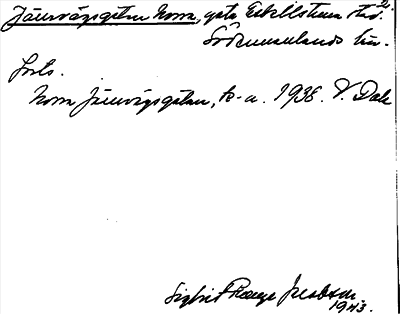 Järnvägsgatan Norra, gata Eskilstuna stad. 2.
Södermanlands län.
Forts.
Norra Järnvägsgatan, tk-a. 1938. V. Dal
Sigbrit Plænge Jacobson.
1943.